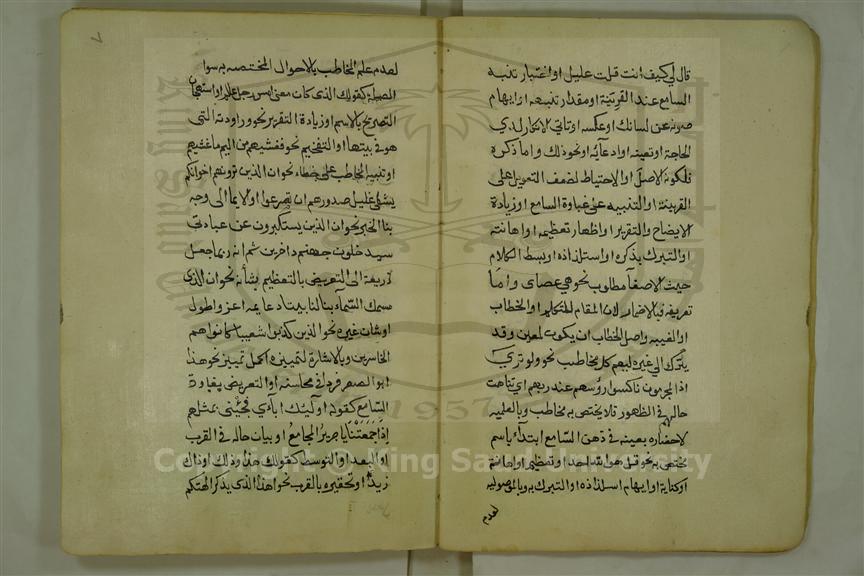 قال لي كيف انت قلت عليل او اختبار تنبه
السامع عند القرينة او مقدار تنبهه او ايهام
صونه عن لسانك او عكسه او تاتي الانكار لدي
الحاجة او تعينه او ادعائه او نحو ذلك واما ذكره
فلكونه الاصل او الاحتياط لضعف التعويل على
القرينة او التنبيه على غباوة السامع او زيادة
الايضاح والتقرير او اظهار تعظيمه او اهانته
او التبرك بذكره او استلذاذه او بسط الكلام
حيث الاصغا مطلوب نحو هي عصاي واما
تعريفه فبالاضمار لان المقام للتكلم او الخطاب
او الغيبة واصل الخطاب ان يكون لمعين وقد
يترك الى غيره ليعم كل مخاطب نحو ولو ترى
اذ المجرمون ناكسوا رؤسهم عند ربهم اي تناهت
حالهم في الظهور فلا يختص به مخاطب وبالعلمية
لاحضاره بعينه في ذهن السامع ابتداء باسم
مختص به نحو قل هو الله احد او تعظيم او اهانة
او كناية او ايهام استلذاذه او التبرك به وبالموصولية
لعدم
لعدم علم المخاطب بالاحوال المختصه به سوا
الصلة كقولك الذي كان معنا امس رجل عالم او استهجان
التصريح بالاسم او زيادة التقرير نحو وراودته التى
هو في بيتها او التفخيم نحو فغشيهم من اليم ما غشيهم
او تنبيه المخاطب على خطاء نحو ان الذين ترونهم اخوانكم
يشفي غليل صدورهم ان تصرعوا او الايما الى وجه
بنا الخبر نحو ان الذين يستكبرون عن عبادتي
سيدخلون جهنم داخرين ثم انه ربما جعل
ذريعة الى التعريض بالتعظيم بشانه نحو ان الذى
سمك السماء بنا لنا بيتا دعايمه اعز واطول
او شان غيره نحو الذين كذبوا شعيبا كانوا هم
الخاسرين وبالاشارة لتميزه اكمل تمييز نحو هذا
ابو الصقر فردا في محاسنه او التعريض بغباوة
السامع كقوله اولئك ابآءي فجئني بمثلهم
اذا جمعتنا يا جرير المجامع او بيان حاله في القرب
او البعد او التوسط كقولك هذا وذلك وذاك
زيد او تحقيره بالقرب نحو اهذا الذى يذكر الهتكم
Copyright © King Saud University
1957